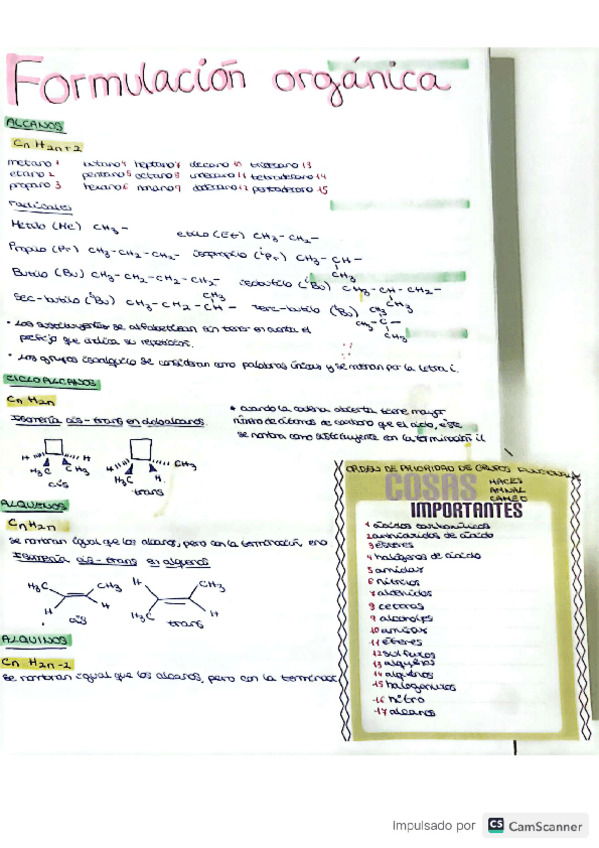 Formulación orgánica
ALCANOS
CnH2n+2
metano 1 butano 4 heptano 7 decano 10 tridecano 13
etano 2 pentano 5 octano 8 undecano 11 tetradecano 14
propano 3 hexano 6 nonano 9 dodecano 12 pentadecano 15
Radicales
Metilo (Me) CH3- etilo (Et) CH3-CH2-
Propilo (Pr) CH3-CH2-CH2- isopropilo (iPr) CH3-CH-
CH3
Butilo (Bu) CH3-CH2-CH2-CH2- isobutilo (iBu) CH3-CH-CH2-
CH3
Sec-butilo (sBu) CH3-CH2-CH- terc-butilo (tBu) CH3-C-
CH3 CH3
CH3
• Los sustituyentes se alfabetizan sin tener en cuenta el
prefijo que indica su repetición.
• Los grupos isoalquilo se consideran como palabras únicas y se nombran por la letra i.
CICLOALCANOS
CnH2n
Isomería cis-trans en cicloalcanos
* cuando la cadena abierta tiene mayor
número de átomos de carbono que el ciclo, este
se nombra como sustituyente con la terminación il
H H H CH3
H3C CH3 H3C H
cis trans
ALQUENOS
CnH2n
Se nombran igual que los alcanos, pero con la terminación eno
Isomería cis-trans en alquenos
H3C CH3 H CH3
H H H3C H
cis trans
ALQUINOS
CnH2n-2
Se nombran igual que los alcanos, pero con la terminac
ORDEN DE PRIORIDAD DE GRUPOS FUNCIONALES
COSAS
IMPORTANTES
1 ácidos carboxílicos
2 anhidridos de ácido
3 ésteres
4 halógenos de ácido
5 amidas
6 nitrilos
7 aldehidos
8 cetonas
9 alcoholes
10 aminas
11 éteres
12 sulfuros
13 alquenos
14 alquinos
15 halogenuros
16 nitro
17 alcanos
Impulsado por CS CamScanner